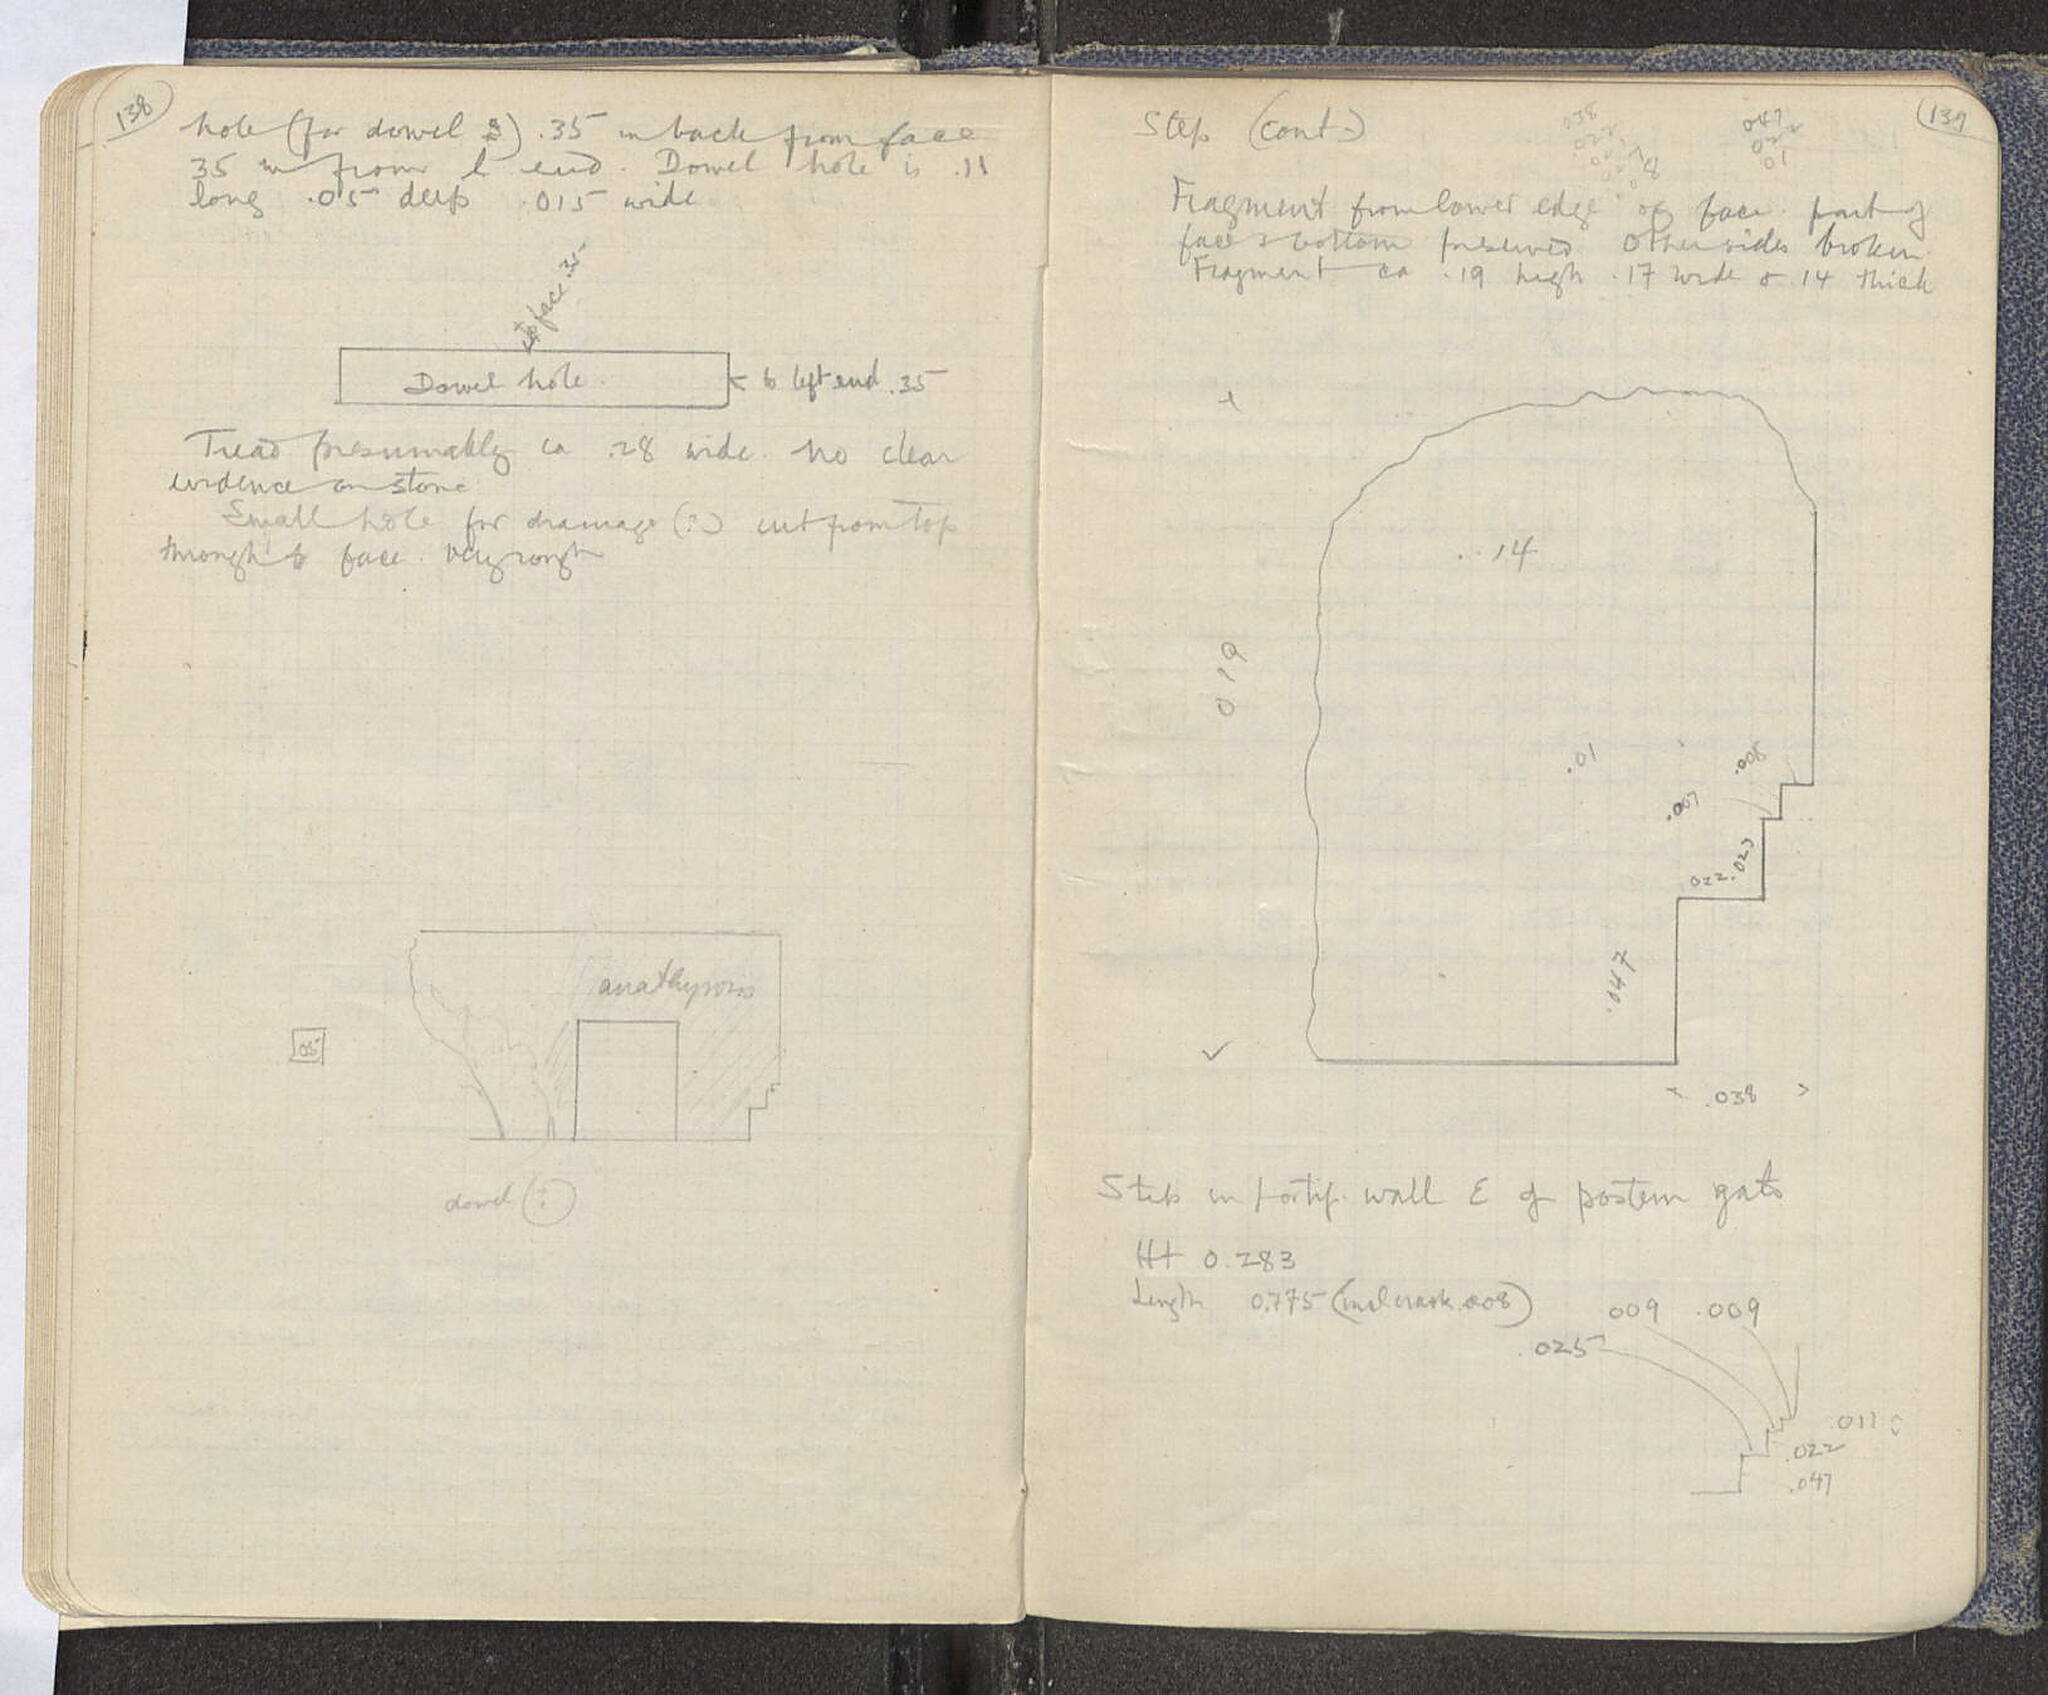 138
hole (for dowel s) .35 m back from face
35 m from l end. Dowel hole is .11
long .05 deep .015 wide
to face .35
Dowel hole.
to left end .35
Tread presumably ca .28 wide. No clear
evidence on stone
Small hole for drainage (?) cut from top
through to face. Very rough
anathyrosis
05
dowel (?)
139
Step (cont.)
038
022
047
022
01
Fragment from lower edge of face. part of
face & bottom preserved other sides broken.
Fragment ca .19 high .17 wide & .14 thick
.14
0 19
.01
.008
.007
022
.023
.047
.038
Step in fortif. wall E of postern gate
Ht 0.283
Length 0.775 (incl crack .008)
009 .009
.025
011
.022
.047